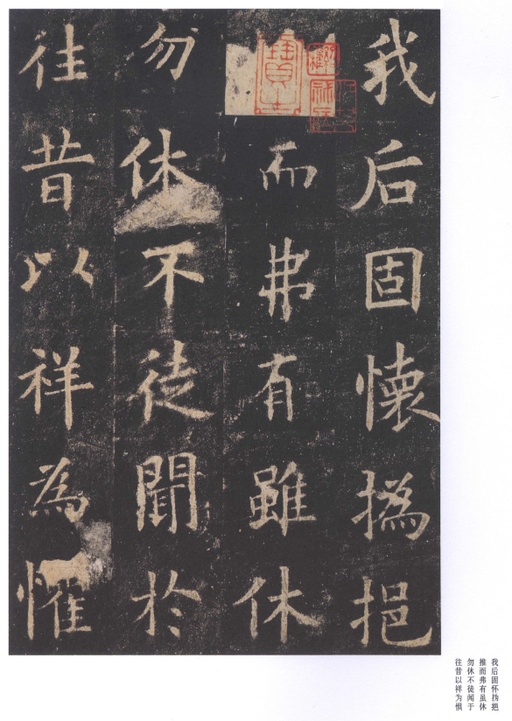 我后固懷撝挹
而弗有雖休
勿休不徒聞於
往昔以祥為懼
我后固怀㧑挹
推而弗有虽休
勿休不徒闻于
往昔以祥为惧